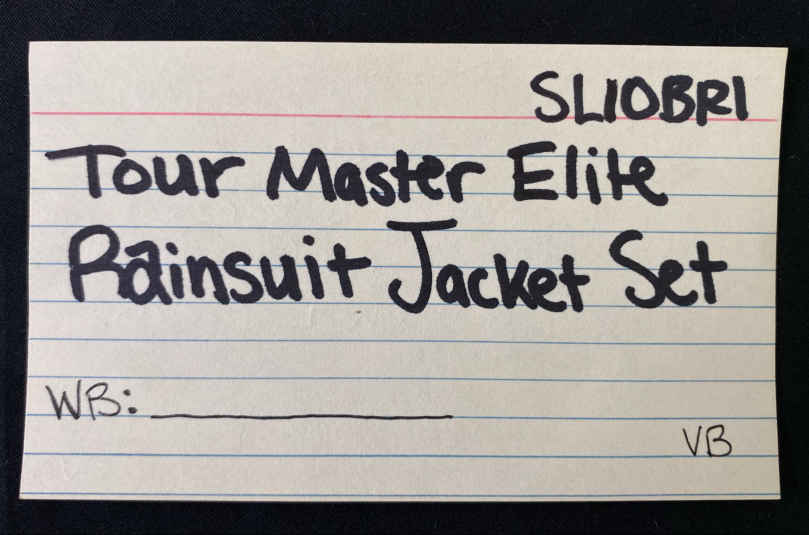 SLIOBRI
Tour Master Elite
Rainsuit Jacket Set
WB: _______________
VB